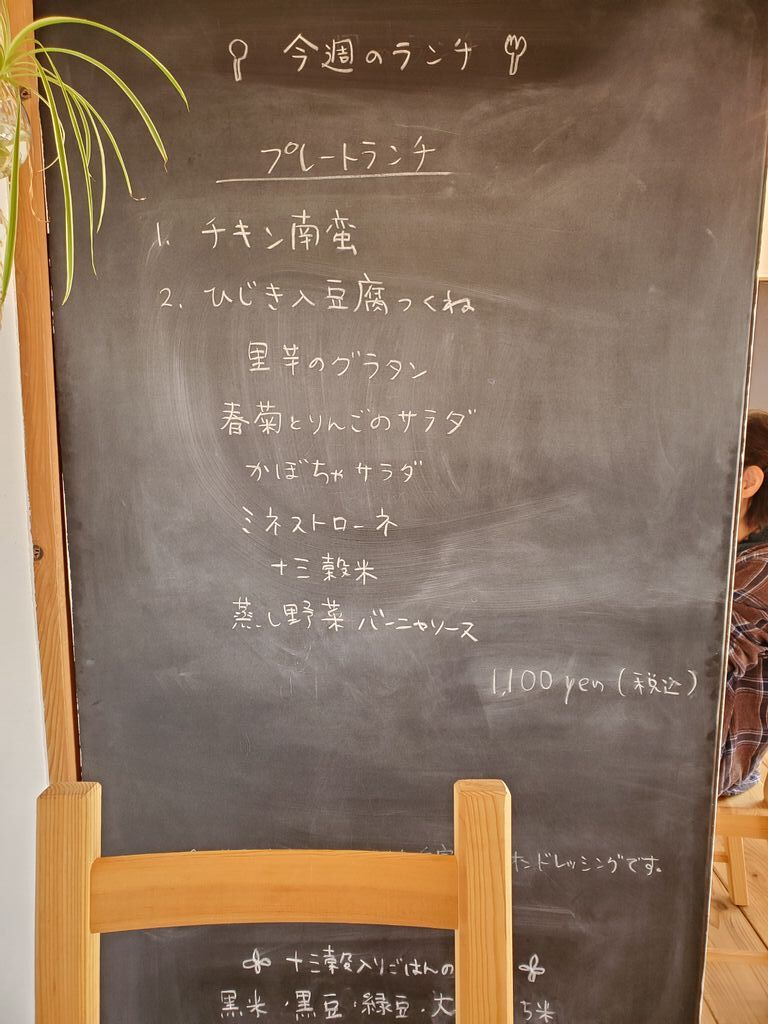 今週のランチ
プレートランチ
1. チキン南蛮
2. ひじき入豆腐つくね
里芋のグラタン
春菊とりんごのサラダ
かぼちゃサラダ
ミネストローネ
十三穀米
蒸し野菜 バーニャソース
1,100 yen (税込)
たドレッシングです。
十三穀入りごはんの
黒米・黒豆・緑豆・大 ち米